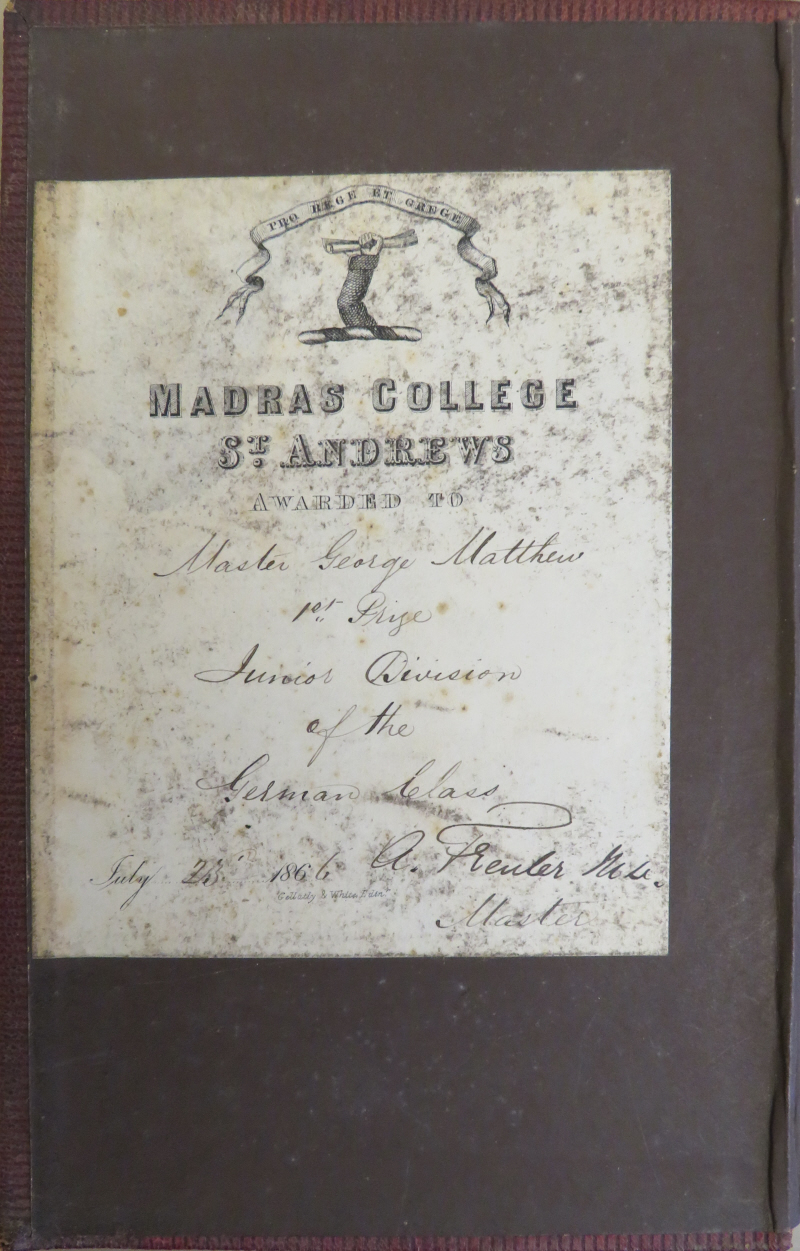 PRO REGE ET GREGE
MADRAS COLLEGE
ST. ANDREWS
AWARDED TO
Master George Matthew
1st Prize
Junior Division
of the
German Class
July 1866 A.
& White, Edinr
Master